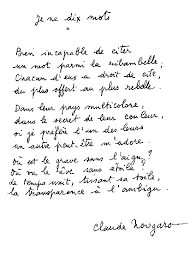 Je ne dix mots
Bien incapable de citer
un mot parmi la ribambelle
Chacun d'eux a droit de cité,
du plus offert au plus rebelle.
Dans leur pays multicolore,
dans le secret de leur couleur,
si je préfère l'un des leurs
un autre peut être m'adore.
Où est le grave sans l'aigu?
Où le rêve sans étoile
Le temps unit, tissant sa toile,
la transparence à l'ambigu.
Claude Nougaro